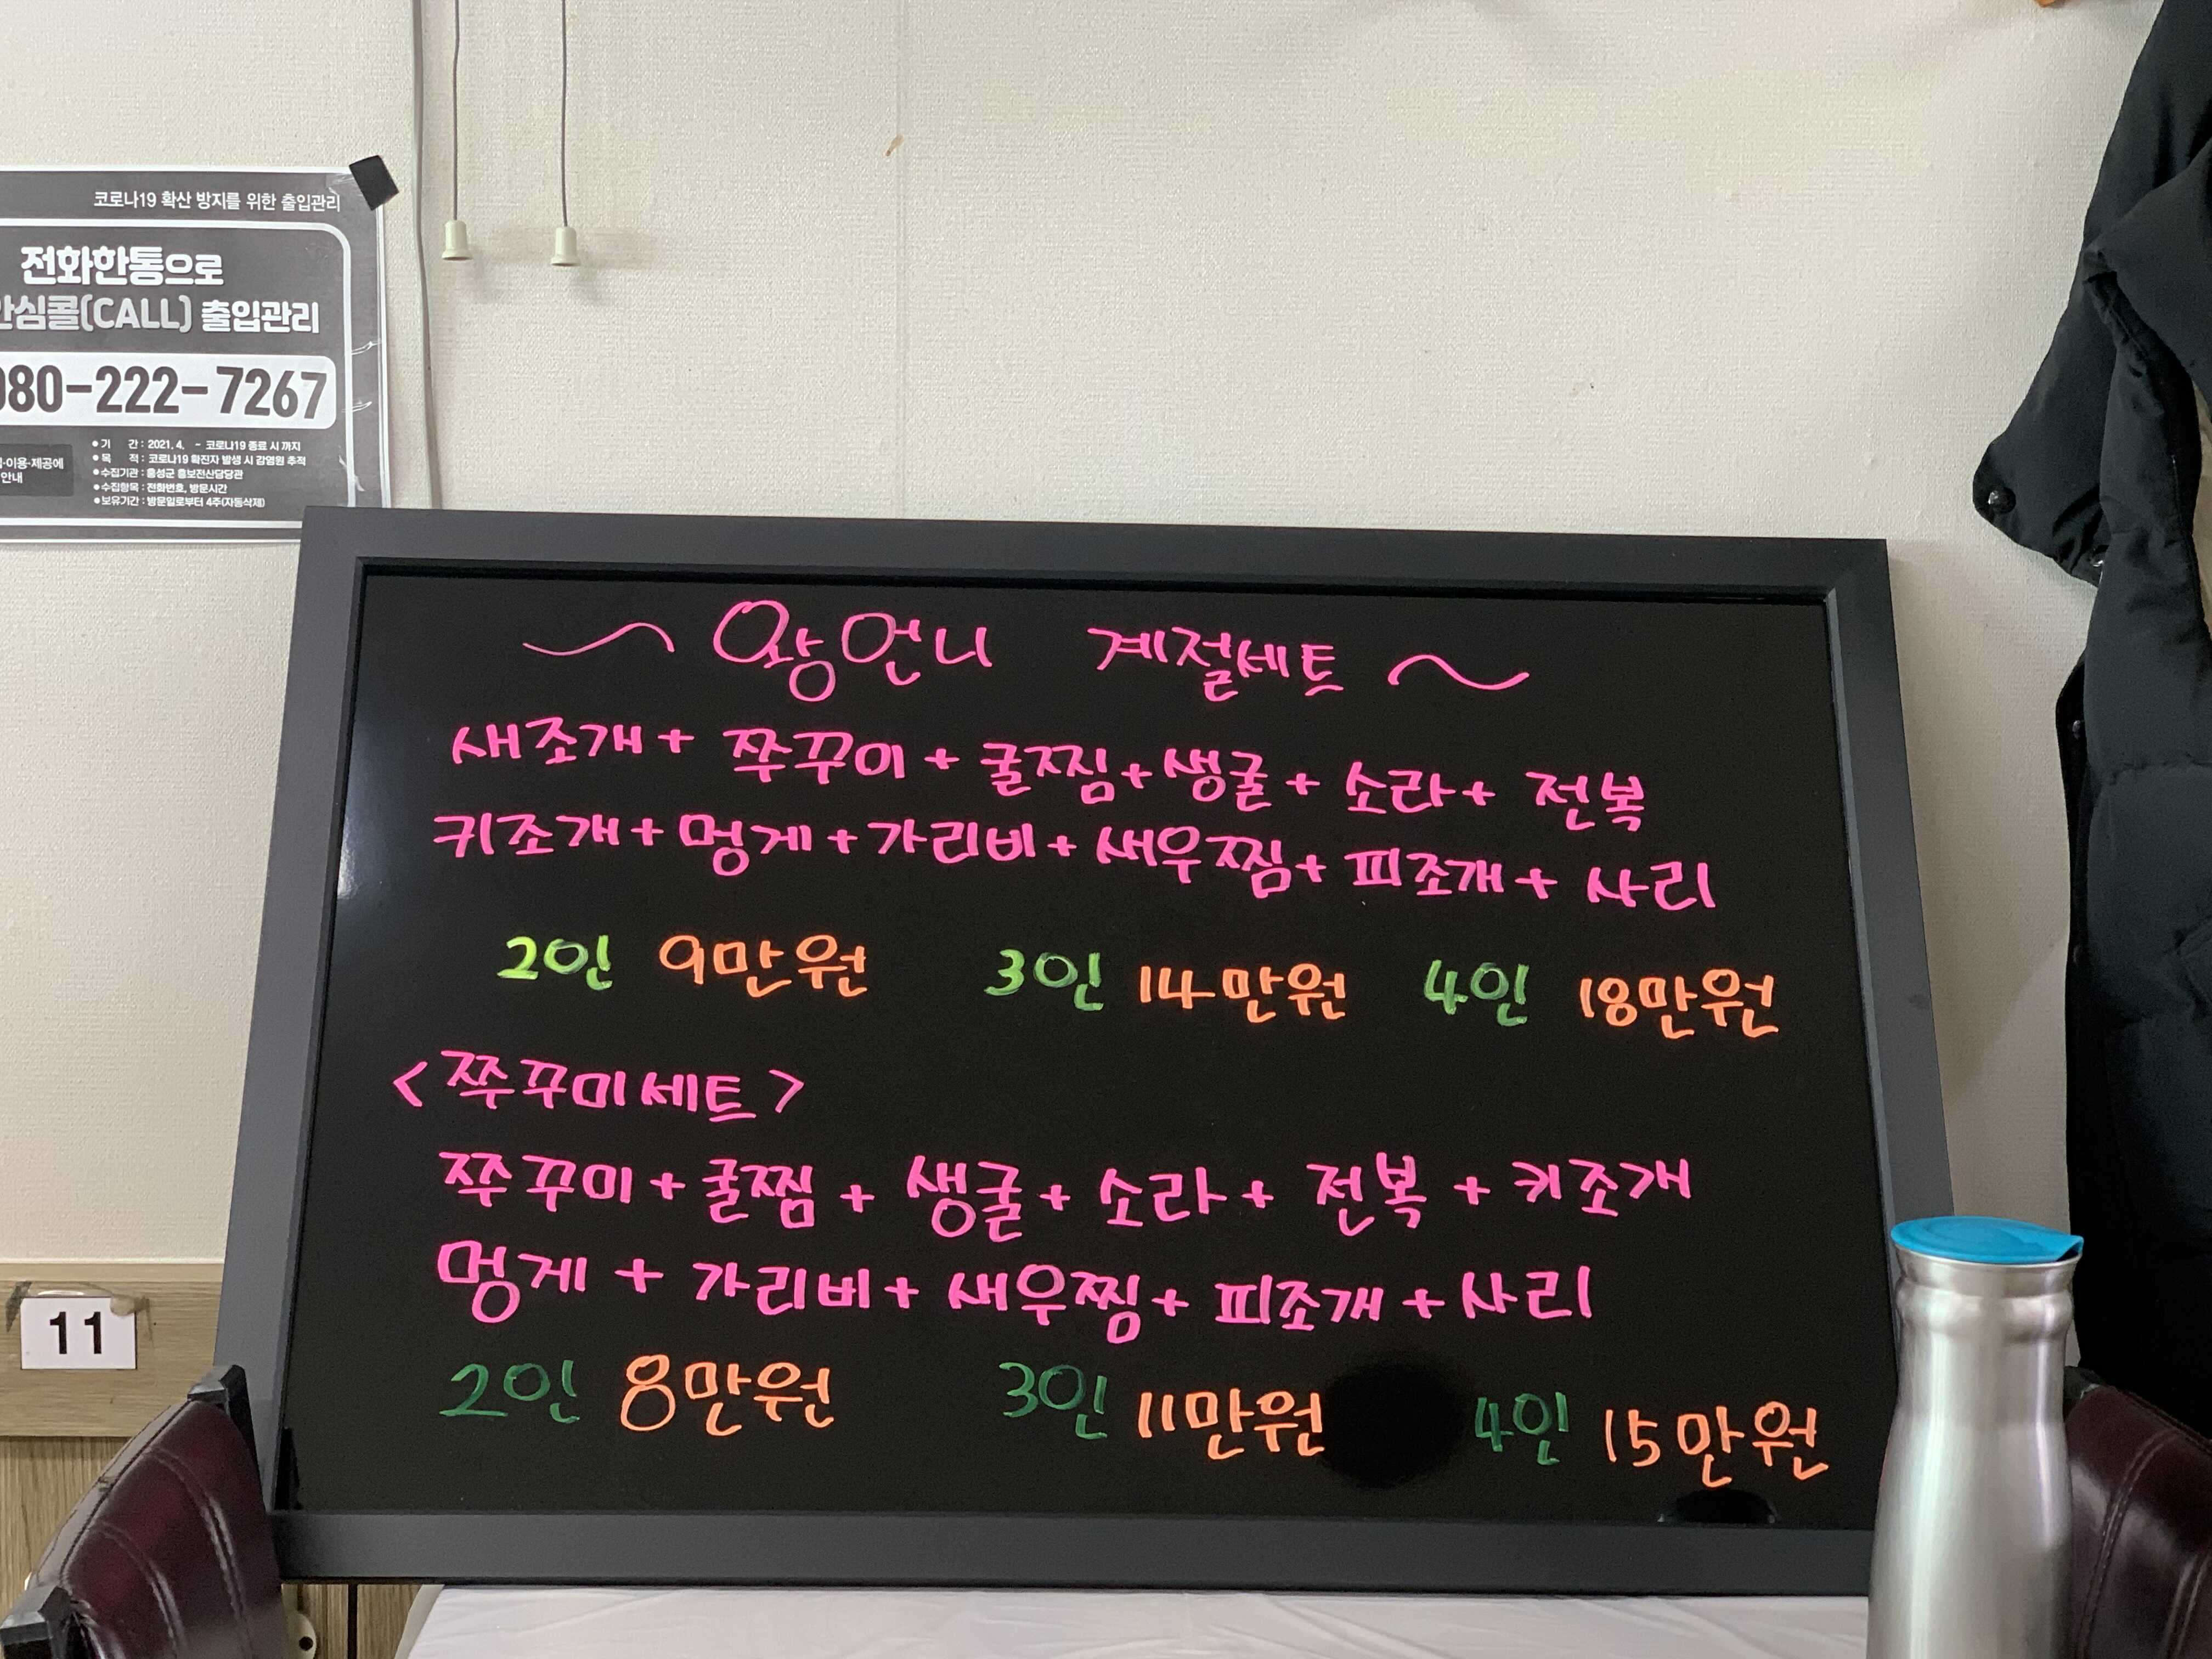 코로나19 확산 방지를 위한 출입관리
전화한통으로
안심콜(CALL) 출입관리
080-222-7267
·이용·제공에
안내
●기 간 : 2021. 4. ~ 코로나19 종료 시 까지
●목 적 : 코로나19 확진자 발생 시 감염원 추적
●수집기관 : 홍성군 홍보전산담당관
●수집항목 : 전화번호, 방문시간
●보유기간 : 방문일로부터 4주(자동삭제)
~ 왕언니 계절세트 ~
새조개+ 쭈꾸미 + 굴찜+생굴 + 소라+ 전복
키조개+멍게+가리비+새우찜+피조개+사리
2인 9만원 3인 14만원 4인 18만원
<쭈꾸미세트>
쭈꾸미+굴찜 + 생굴+소라+ 전복 + 키조개
멍게 + 가리비+새우찜+피조개+사리
2인 8만원 3인 11만원 4인 15만원
11